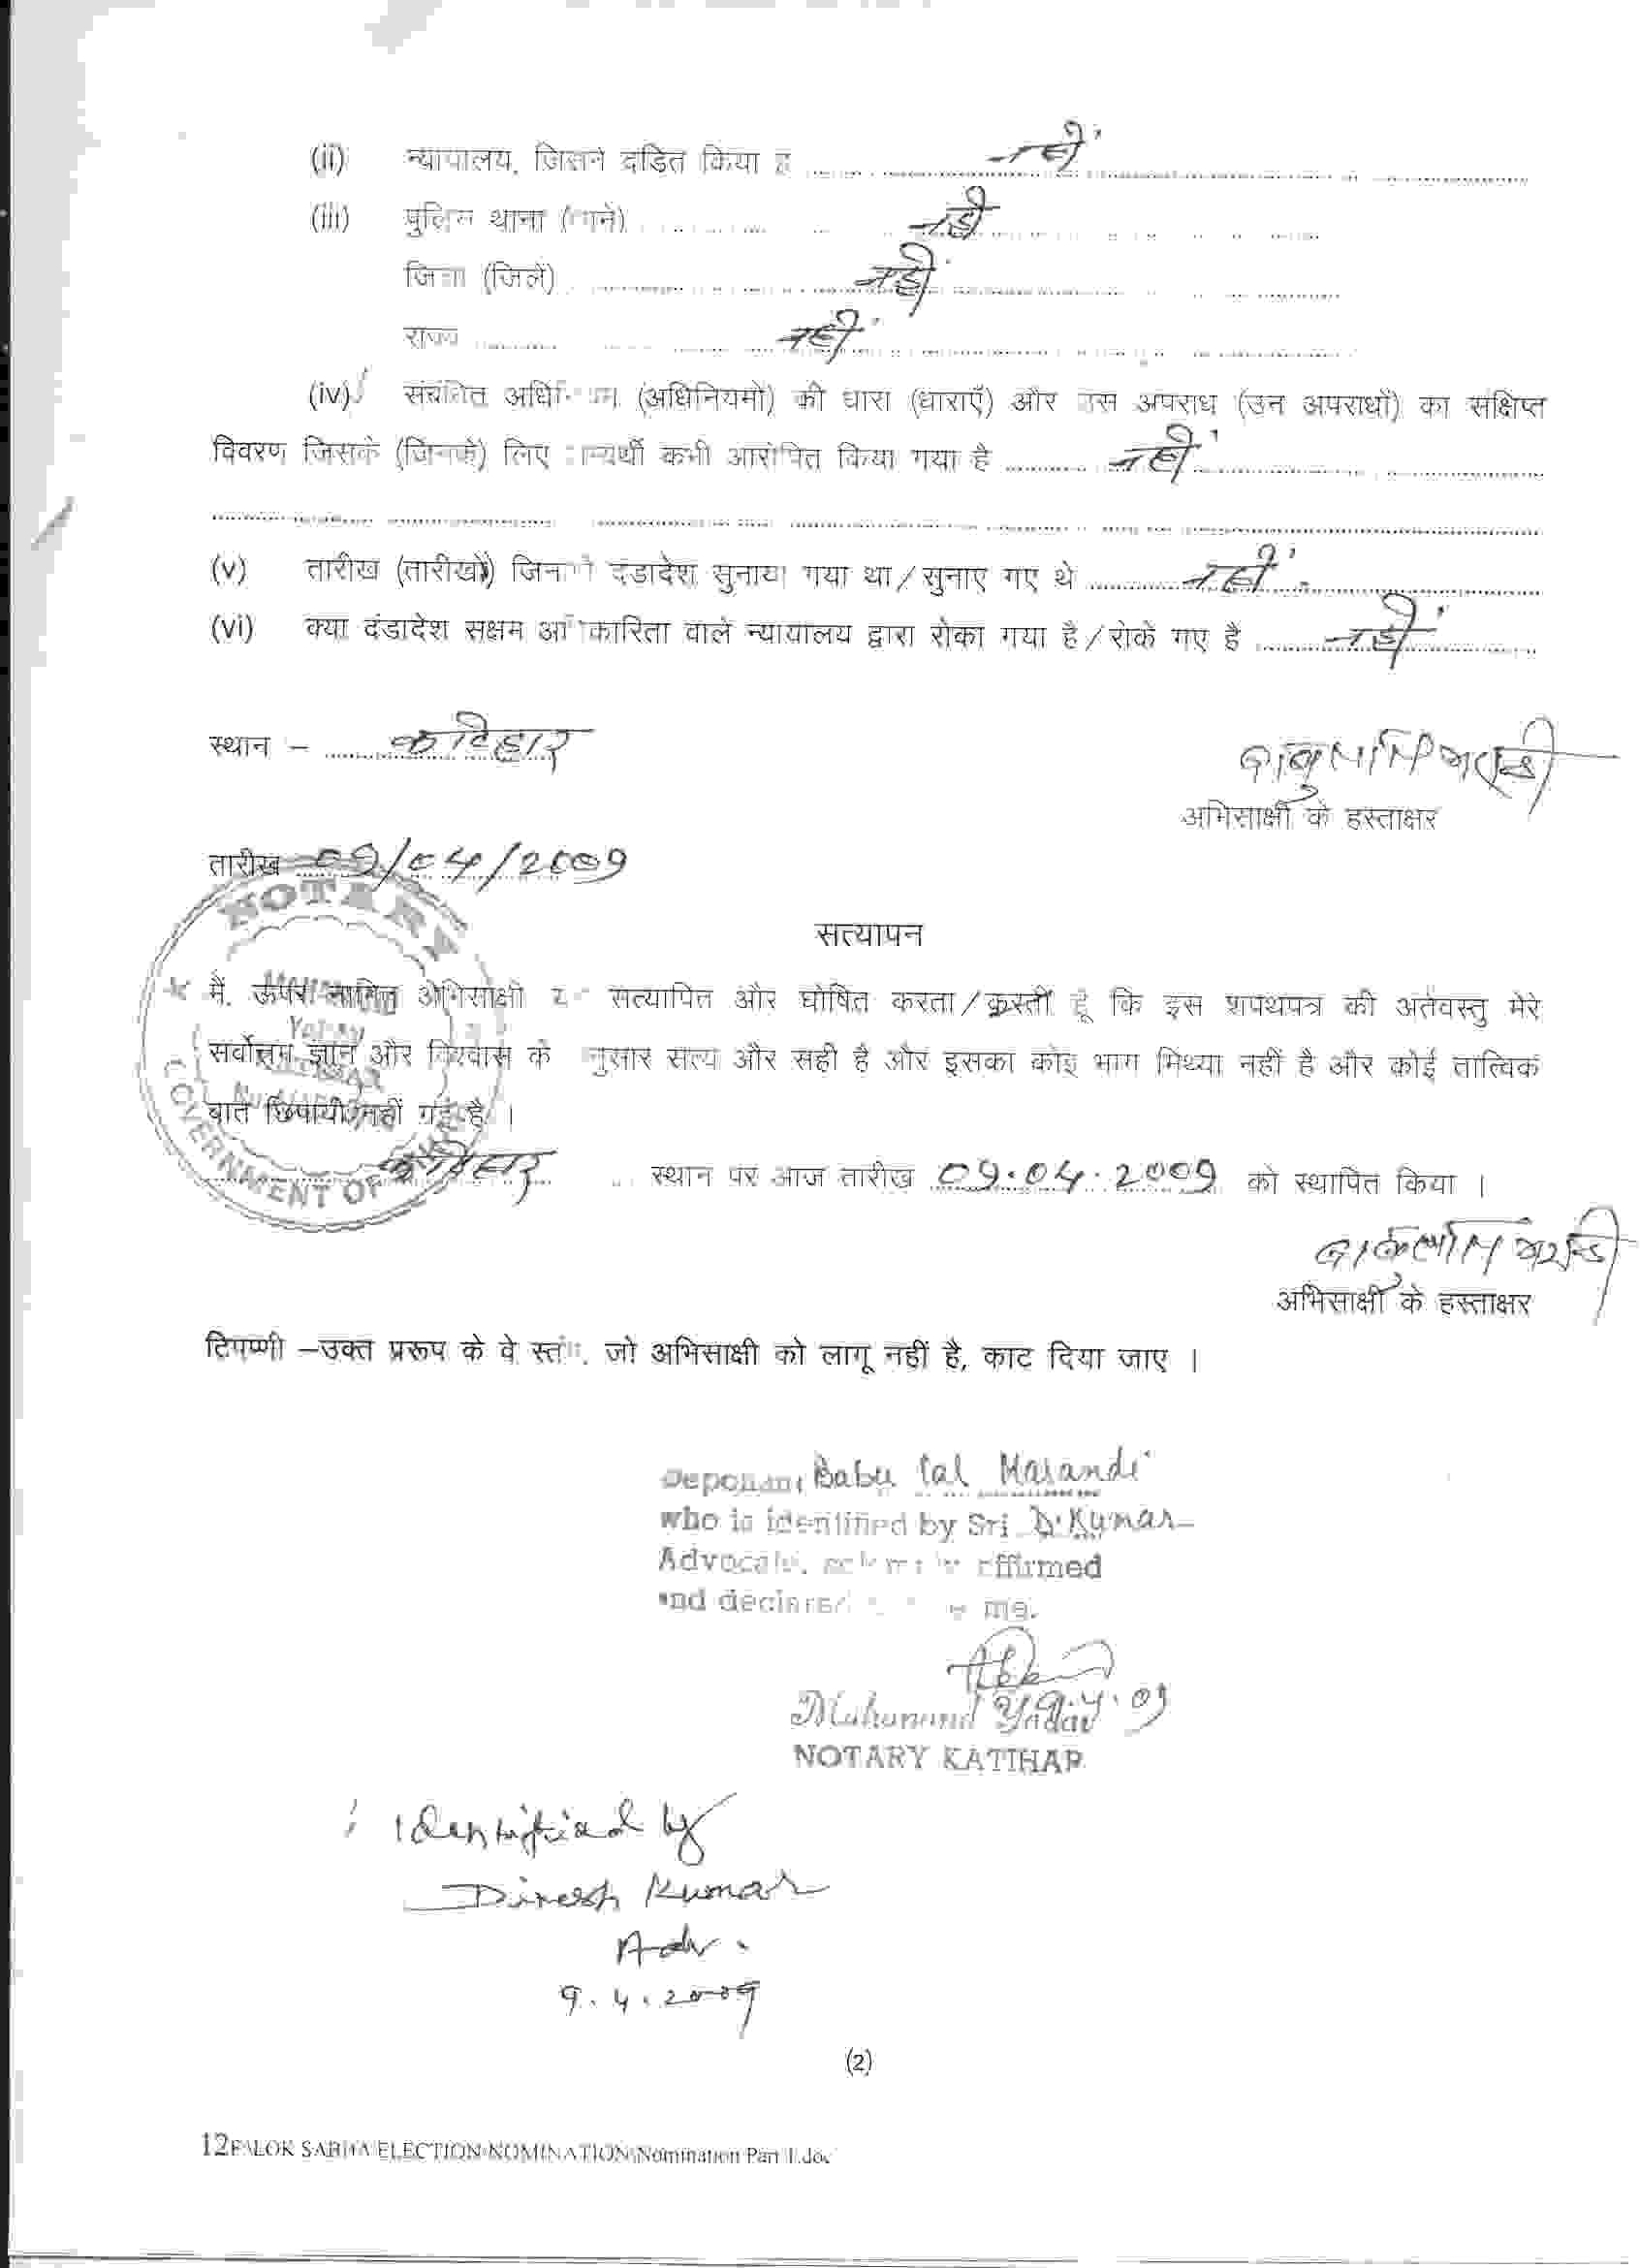 (ii) न्यायालय, जिसने दंडित किया है नहीं
(iii) पुलिस थाना (थाने) नहीं
जिला (जिले) नहीं
राज्य नहीं
(iv) संबंधित अधिनियम (अधिनियमों) की धारा (धाराएँ) और उस अपराध (उन अपराधों) का संक्षिप्त
विवरण जिसके (जिनके) लिए अभ्यर्थी कभी आरोपित किया गया है नहीं
(v) तारीख (तारीखों) जिनको दंडादेश सुनाया गया था/सुनाए गए थे नहीं
(vi) क्या दंडादेश सक्षम अधिकारिता वाले न्यायालय द्वारा रोका गया है/रोके गए है नहीं
स्थान – कटिहार
अभिसाक्षी के हस्ताक्षर
तारीख 09/04/2009
NOTARY
GOVERNMENT OF
सत्यापन
मैं, ऊपर नामित अभिसाक्षी सत्यापित और घोषित करता/करती हूँ कि इस शपथपत्र की अंतर्वस्तु मेरे
सर्वोत्तम ज्ञान और विश्वास के अनुसार सत्य और सही है और इसका कोई भाग मिथ्या नहीं है और कोई तात्विक
बात छिपायी नहीं गई है ।
कटिहार स्थान पर आज तारीख 09.04.2009 को स्थापित किया ।
अभिसाक्षी के हस्ताक्षर
टिपण्णी –उक्त प्ररूप के वे स्तंभ, जो अभिसाक्षी को लागू नहीं है, काट दिया जाए ।
Deponant Babu Lal Marandi
who is identified by Sri D. Kumar
Advocate, solemnly affirmed
and declared before me.
9.4.09
Mahanand Yadav
NOTARY KATIHAR
Identified by
Dinesh Kumar
Adv.
9.4.2009
(2)
12F:\LOK SABHA ELECTION\NOMINATION\Nomination Part I.doc